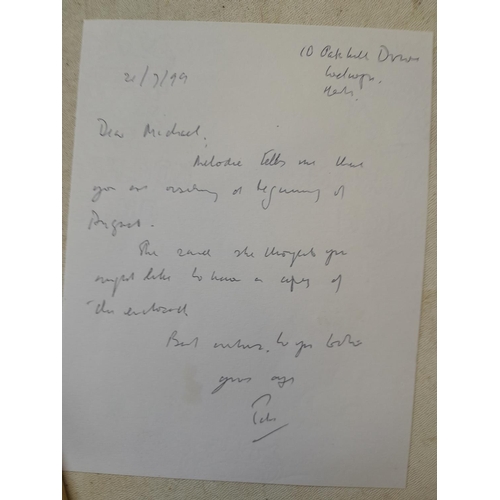 10 Oakhill Drive
Welwyn,
Herts.
21/7/99
Dear Michael,
Melodie tells me that
you are visiting at beginning of
August.
She said she thought you
might like to have a copy of
the enclosed
Best wishes, to you both
yours age